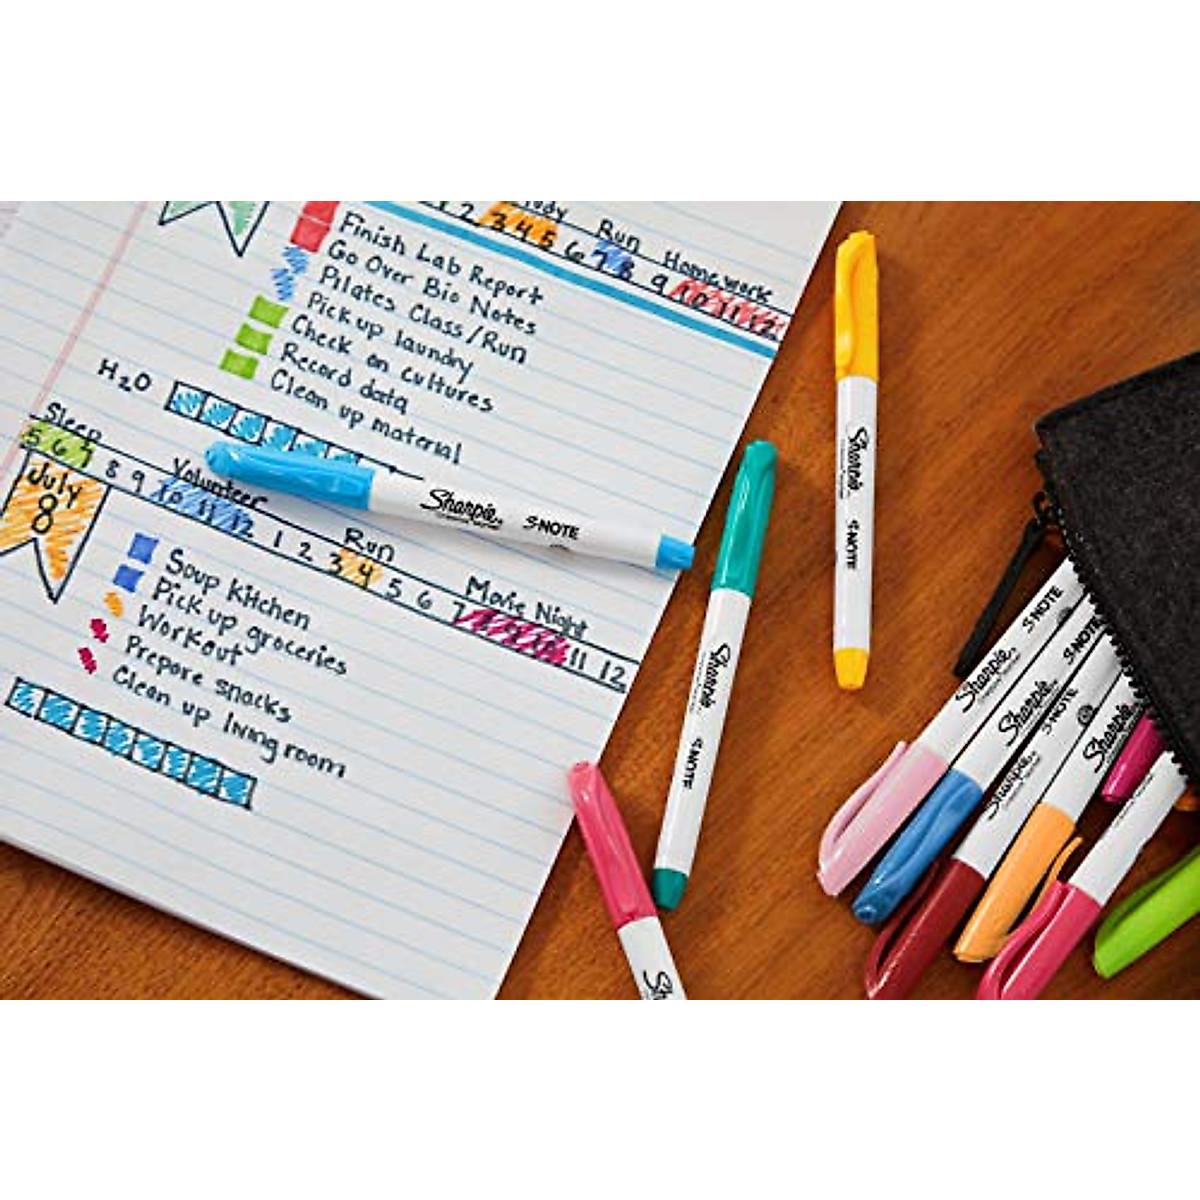 Run Homework
1 2 3 4 5 6 7 8 9 10 11 12
Finish Lab Report
Go Over Bio Notes
Pilates Class/Run
Pick up laundry
Check on cultures
Record data
Clean up material
H2O
Sleep Volunteer Run Movie Night
5 6 7 8 9 10 11 12 1 2 3 4 5 6 7 8 9 10 11 12
July
8
Soup Kitchen
Pick up groceries
Workout
Prepare snacks
Clean up living room
Sharpie S·NOTE
Sharpie S·NOTE
Sharpie S·NOTE
Sharpie S·NOTE
Sharpie S·NOTE
Sharpie S·NOTE
Sharpie
Sh